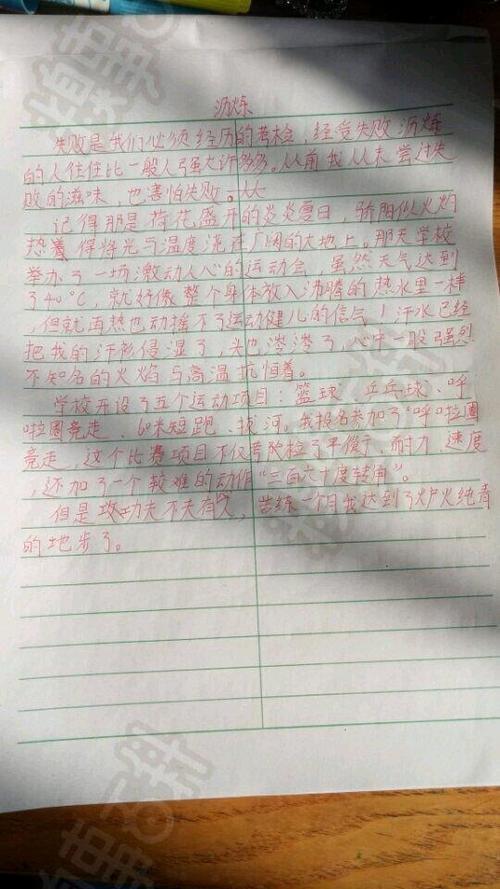 沥炼
失败是我们必须经历的考检，经受失败沥炼
的人往往比一般人强大许多多。从前我从未尝过失
败的滋味，也害怕失败。从
记得那是荷花盛开的炎炎夏日，骄阳似火灼
热着保将光与温度洒在广阔的大地上。那天学校
举办了一场激动人心的运动会，虽然天气达到
了40°C，就好像整个身体放入沸腾的热水里一样
，但就再热也动摇不了运动健儿的信号！汗水已经
把我的汗衫侵湿了，头也湿湿了，心中一股强烈
不知名的火焰与高温抗恒着。
学校开设了五个运动项目：篮球、乒乓球、呼
啦圈竞走、60米短跑、拔河。我报名参加了呼啦圈
竞走，这个比赛项目不仅考验检了平衡、耐力、速度
，还加了一个较难的动作“三百六十度转角”。
但是功夫不夫有人，苦练一个月我达到了炉火纯青
的地步了。